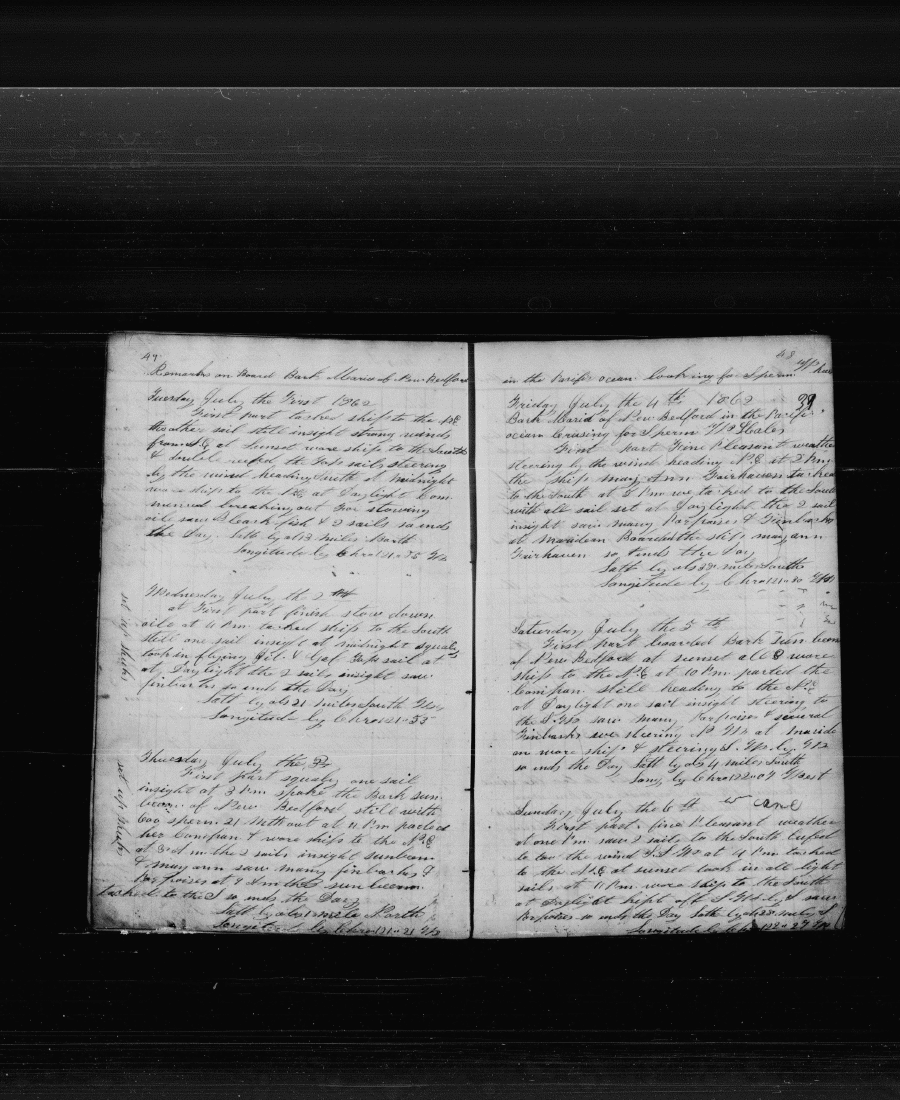 47
Remarks on Board Bark Maria of New Bedford
Tuesday July the First 1862
First part tacked ship to the NE
the other sail still insight strong winds
from S.E at Sunset ware ship to the South
& Double reefed the Top sails steering
by the wind heading South at midnight
ware ship to the NE at Daylight Com
menced breaking out For stowing
oile saw Black fish & 2 sails so ends
the Day Latt by obs 13 miles North
Longitude by Chro 121-35 Ws
Wednesday July the 2 th
at First part finish stow down
oile at 4 P.m tacked ship to the South
still one sail insight at midnight squals
took in flying Gib & Top sail at
at Daylight the 2 sails insight saw
finbacks so ends the Day
Latt by obs 21 miles South
Longitude by Chro 121-55
set up
Thursday July the 3
First part squaly one sail
insight at 3 P.m spoke the Bark Sun
beam of New Bedford still with
600 sperm 21 Months out at 11 P.m parted
her Companj & ware ships to the N.E
at 3 A.m the 2 sails insight Sunbeam
& may ann saw many finbacks &
Porpoises at 9 A.m the Sunbeam
tacked to the S so ends the Day
Latt by obs mile North
Longitude by Chro 121-21 Ws
set up
48
in the Pacific ocean Looking for Sperm Whales
Friday July the 4 th 1862 39
Bark Maria of New Bedford in the Pacific
ocean Crusing for Sperm Whales
First part Fine Pleasant weather
steering by the wind heading N.E at 2 P.m
the ship may Ann Fairhaven tacked
to the South at 8 P.m we tacked to the South
with all sail set at Daylight the 2 sail
insight saw many Porpoises & Finbacks
at Maridean Boarded the ship may ann
Fairhaven so Ends the Day
Latt by obs 33 miles South
Longitude by Chro 121-30
Saturday July the 5 th
First part boarded Bark Sunbeam
of New Bedford at sunset all 3 ware
ship to the N.E at 10 P.m parted the
Companj still heading to the N.E
at Daylight one sail insight steering to
the S.W saw many Porpoises & several
Finbacks we steering N W at maride
an ware ship & steering S. by
so ends the Day Latt by obs 4 miles South
Long by Chro 122-07 West
Sunday July the 6 th
First part fine Pleasant weather
at one P.m saw 2 sails to the South
to the wind at 4 P.m tacked
to the N.E at sunset took in all light
sails at 11 P.m ware ship to the South
at Daylight kept off S & saw
Porpoises so ends the Day Latt by obs miles S
Longitude by Chro 122-27